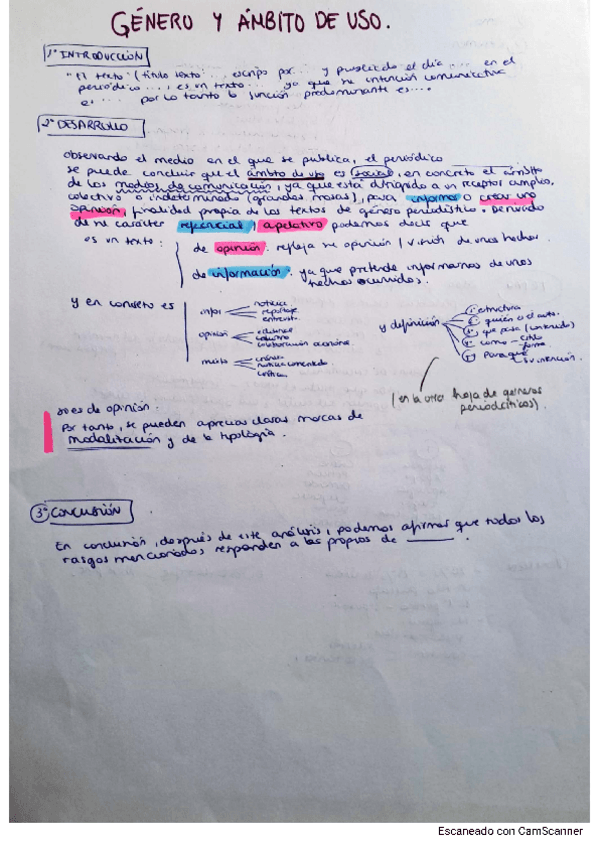 GÉNERO Y ÁMBITO DE USO.
1º INTRODUCCIÓN
"El texto (título texto ..., escrito por... y publicado el día .... en el
periódico ...., es un texto .... ya que su intención comunicativa
es .... por lo tanto la función predominante es....
2º DESARROLLO
Observando el medio en el que se publica, el periódico
se puede concluir que el ámbito de uso es social, en concreto el ámbito
de los medios de comunicación, ya que está dirigido a un receptor amplio,
colectivo o indeterminado (grandes masas), para informar o crear una
opinión, finalidad propia de los textos de género periodístico. Derivado
de su carácter referencial / apelativo podemos decir que
es un texto:
de opinión: refleja su opinión / visión de unos hechos.
de información: ya que pretende informarnos de unos
hechos ocurridos.
y en concreto es
infor
noticia.
reportaje
entrevista.
opinión
editorial
columna
colaboración
mixto
crónica.
noticia comentada
crítica.
y definición
1º estructura
2º quién es el autor.
3º que pasa (contenido)
4º como - estilo
forma
5º Para qué
su intención.
(en la otra hoja de géneros
periodísticos).
si es de opinión.
Por tanto, se pueden apreciar claras marcas de
modalización y de la tipología.
3º CONCLUSIÓN
En conclusión, después de este análisis, podemos afirmar que todos los
rasgos mencionados responden a los propios de ______.
Escaneado con CamScanner